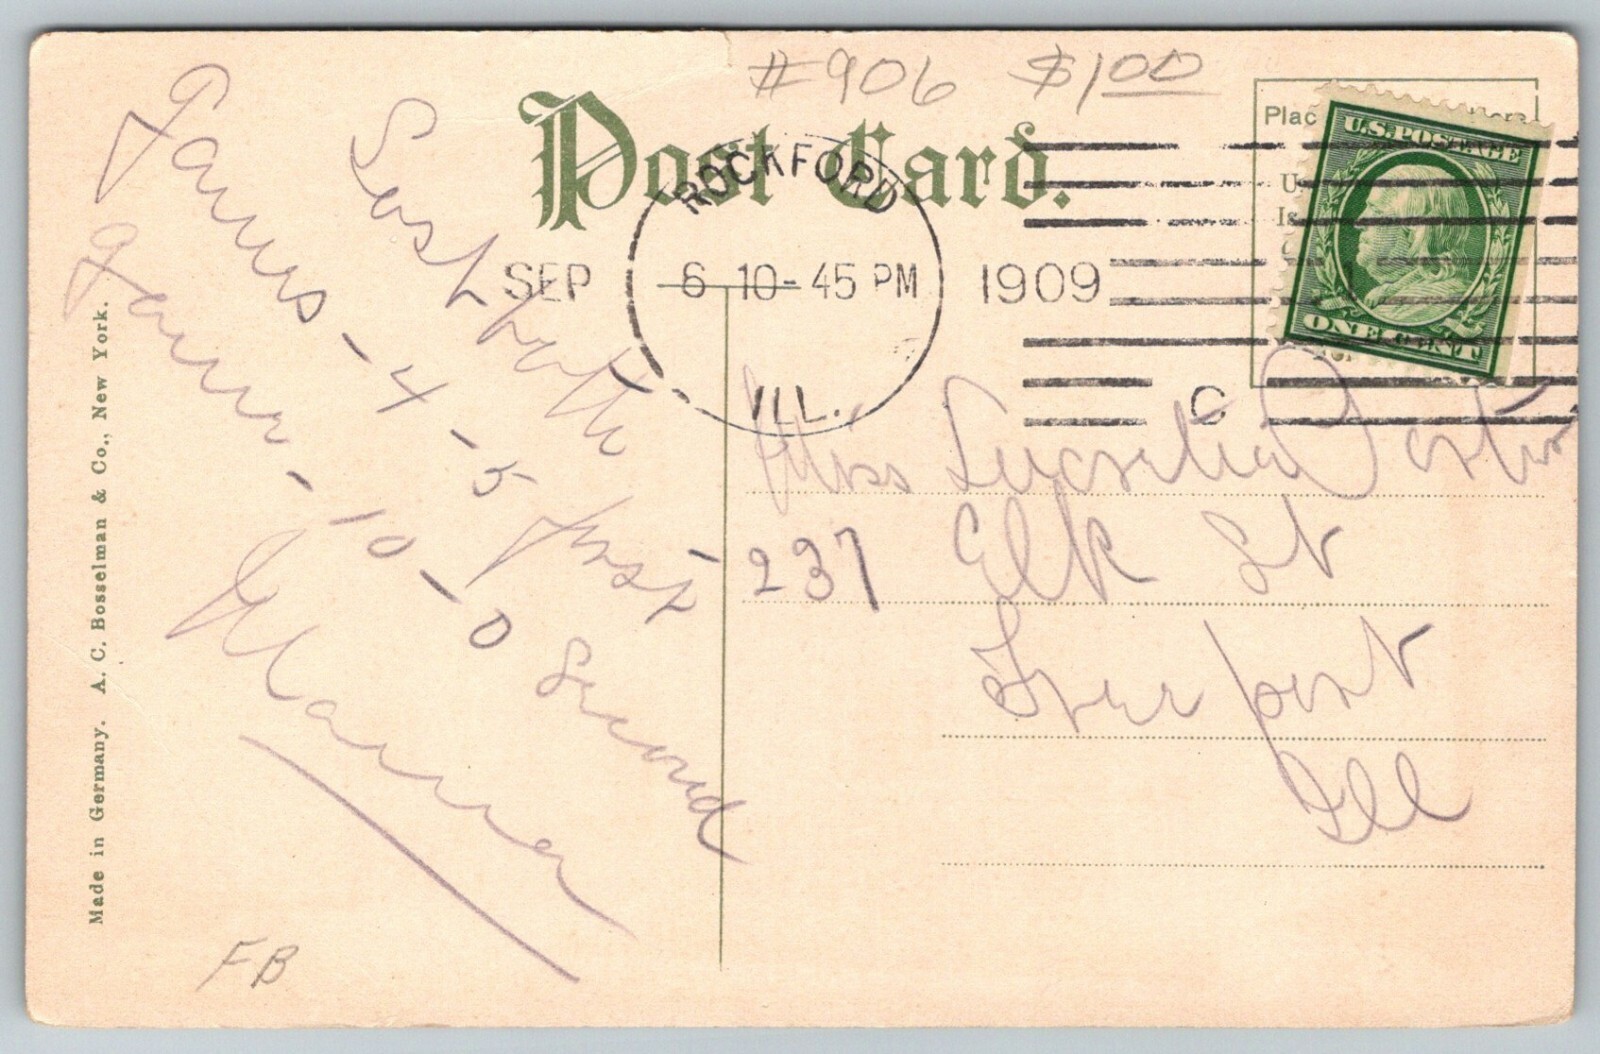 #906 $1.00
Post Card.
Plac
U.S.POSTAGE
ONE CENT
ROCKFORD
SEP 6 10-45 PM 1909
ILL.
C
Lost both
Games - 4 - 5 first
Game - 10 - 0 Second
Mama
Miss Lucretia Porter
237 Elk St
Freeport
Ill
Made in Germany. A. C. Bosselman & Co., New York.
FB